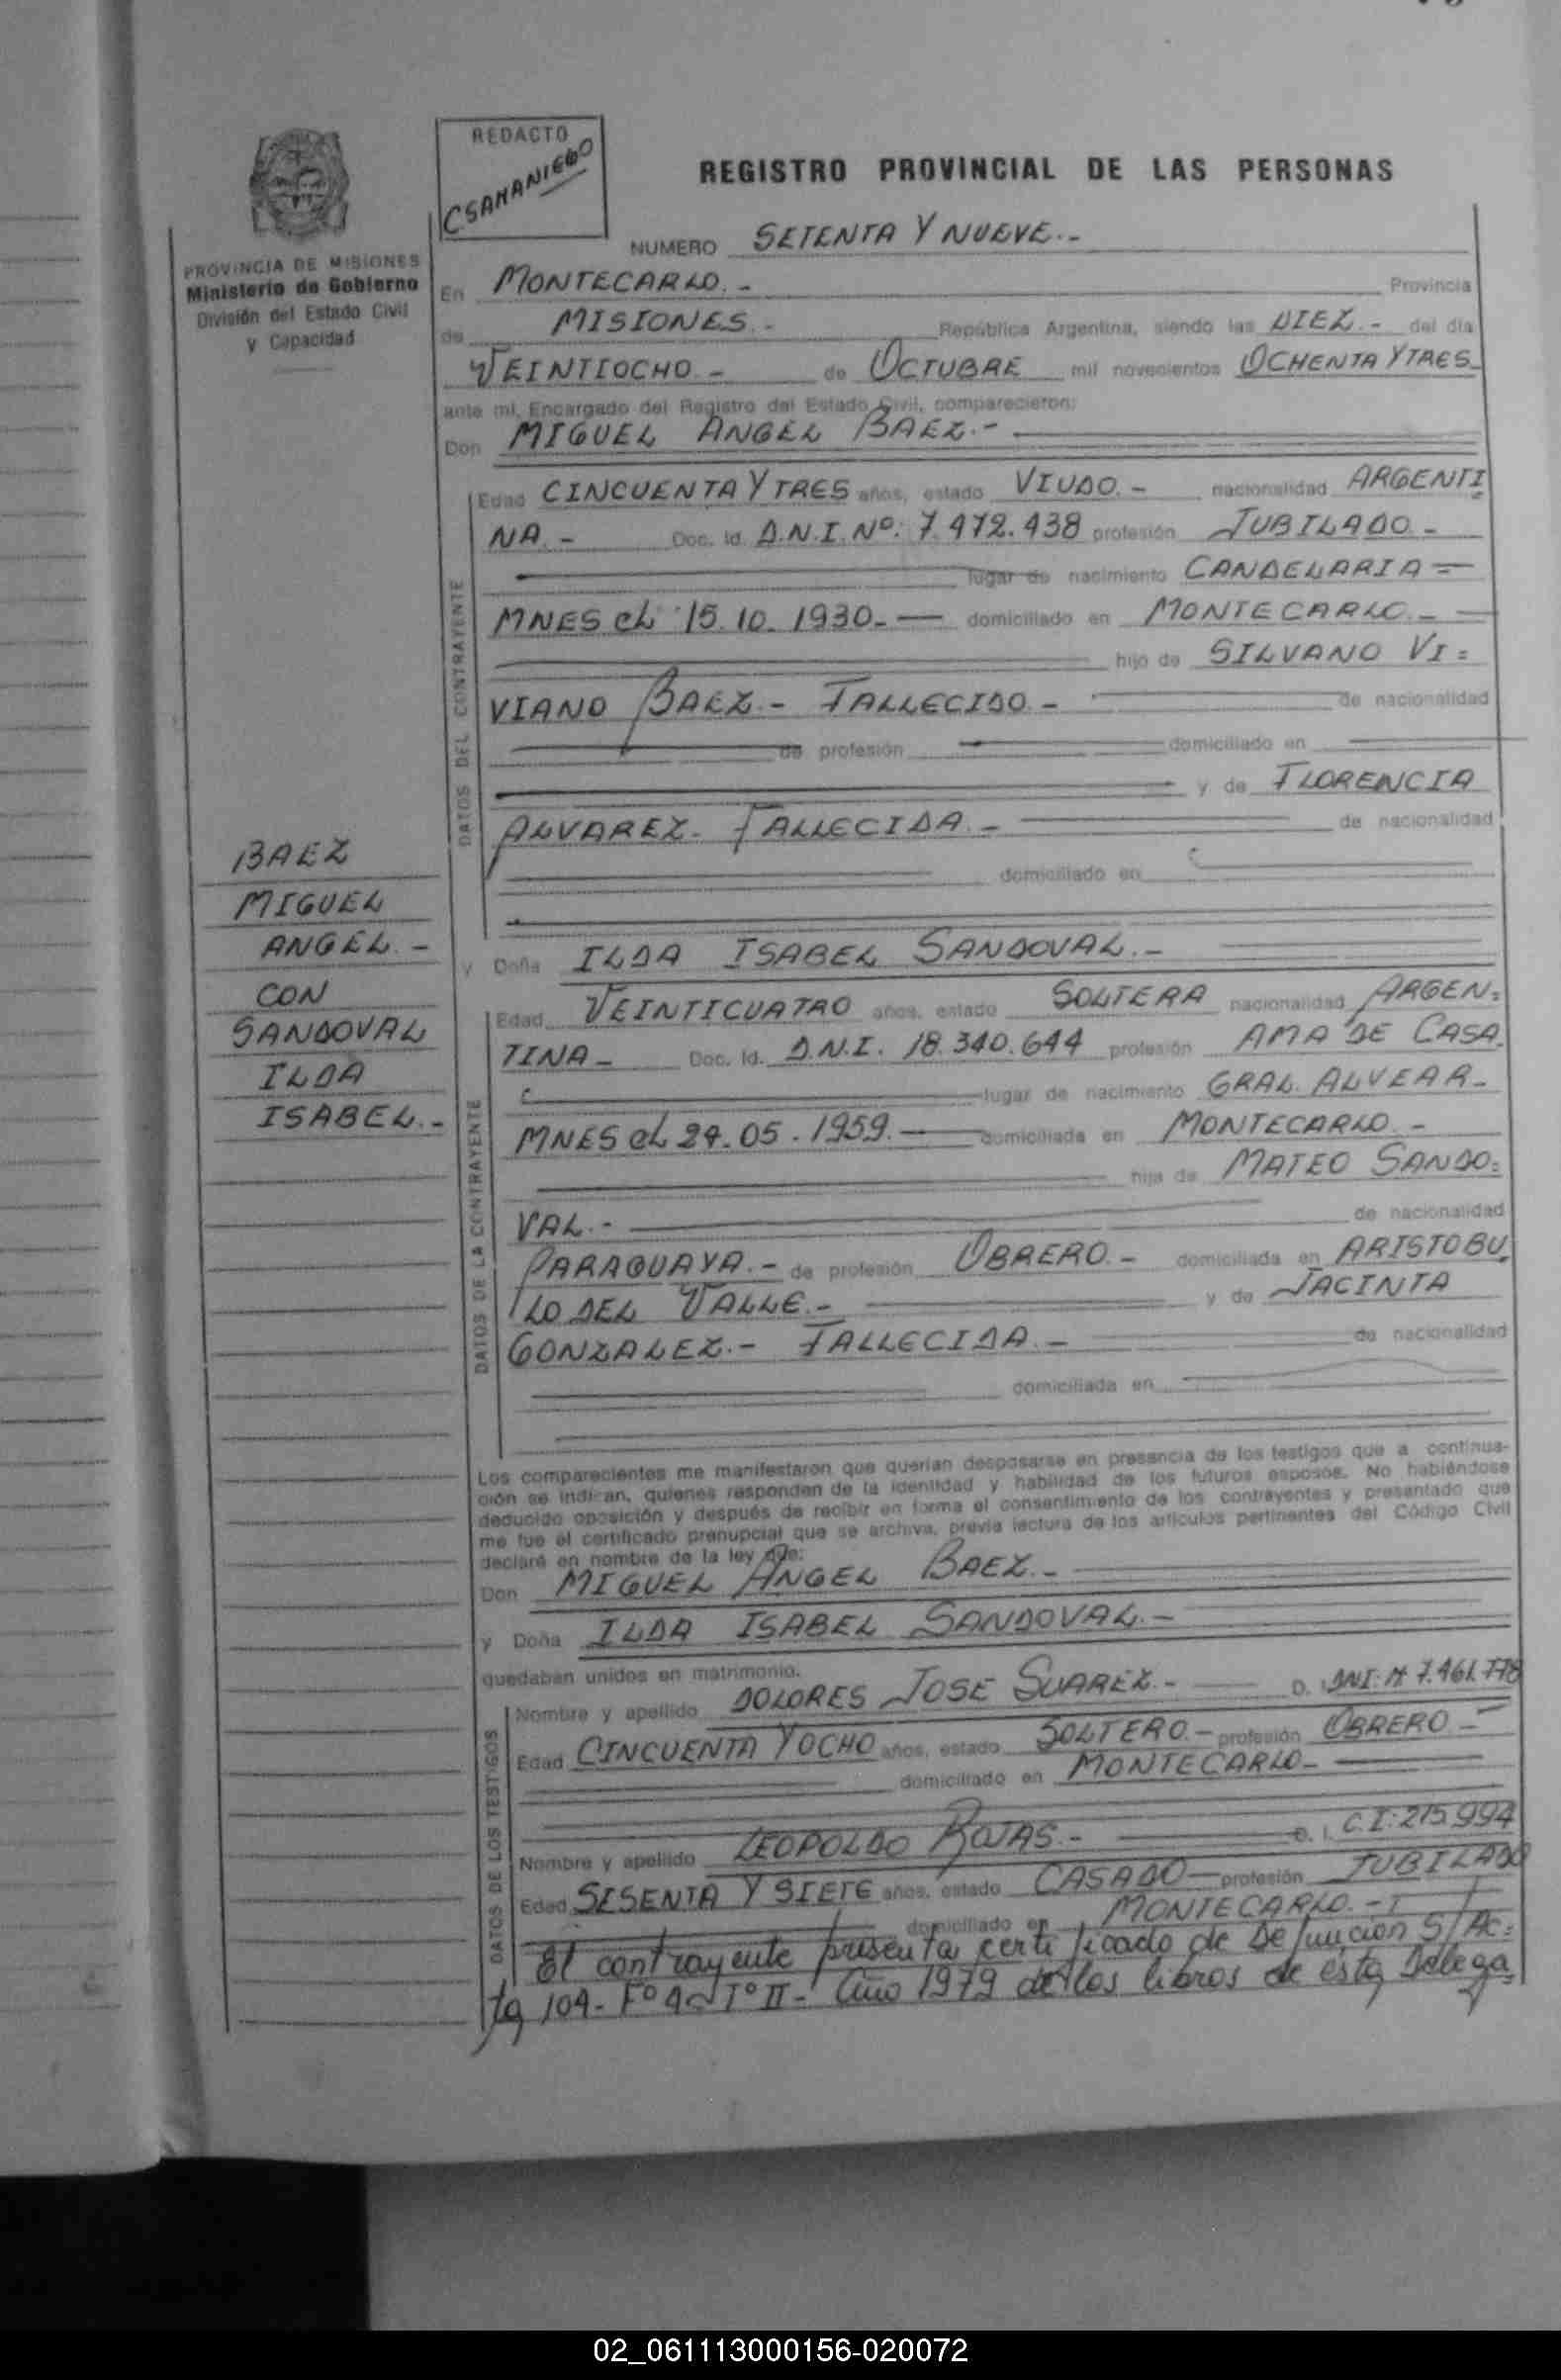 REDACTO
CSAMANIEGO
REGISTRO PROVINCIAL DE LAS PERSONAS
NUMERO SETENTA Y NUEVE.-
PROVINCIA DE MISIONES
Ministerio de Gobierno
División del Estado Civil
y Capacidad
En MONTECARLO.- Provincia
de MISIONES.- República Argentina, siendo las DIEZ.- del día
VEINTIOCHO.- de OCTUBRE mil novecientos OCHENTA Y TRES-
ante mi, Encargado del Registro del Estado Civil, comparecieron:
Don MIGUEL ANGEL BAEZ.-
DATOS DEL CONTRAYENTE
Edad CINCUENTA Y TRES años, estado VIUDO.- nacionalidad ARGENTI
NA.- Doc. Id. D.N.I. Nº: 7.472.438 profesión JUBILADO.-
lugar de nacimiento CANDELARIA=
MNES el 15.10.1930.- domiciliado en MONTECARLO.-
hijo de SILVANO VI=
VIANO BAEZ.- FALLECIDO.- de nacionalidad
de profesión domiciliado en
y de FLORENCIA
ALVAREZ- FALLECIDA.- de nacionalidad
domiciliado en
BAEZ
MIGUEL
ANGEL.-
CON
SANDOVAL
ILDA
ISABEL.-
y Doña ILDA ISABEL SANDOVAL.-
DATOS DE LA CONTRAYENTE
Edad VEINTICUATRO años, estado SOLTERA nacionalidad ARGEN=
TINA- Doc. Id. D.N.I. 18.340.644 profesión AMA DE CASA.
lugar de nacimiento GRAL. ALVEAR-
MNES el 24.05.1959.- domiciliada en MONTECARLO.-
hija de MATEO SANDO=
VAL.- de nacionalidad
PARAGUAYA.- de profesión OBRERO.- domiciliada en ARISTOBU
LO DEL VALLE.- y de JACINTA
GONZALEZ.- FALLECIDA.- de nacionalidad
domiciliada en
Los comparecientes me manifestaron que querían desposarse en presencia de los testigos que a continua-
ción se indican, quienes responden de la identidad y habilidad de los futuros esposos. No habiéndose
deducido oposición y después de recibir en forma el consentimiento de los contrayentes y presentado que
me fue el certificado prenupcial que se archiva, previa lectura de los artículos pertinentes del Código Civil
declaré en nombre de la ley que:
Don MIGUEL ANGEL BAEZ.-
y Doña ILDA ISABEL SANDOVAL.-
quedaban unidos en matrimonio.
DATOS DE LOS TESTIGOS
Nombre y apellido DOLORES JOSE SUAREZ.- D. I. DNI: Nº 7.461.778
Edad CINCUENTA Y OCHO años, estado SOLTERO.- profesión OBRERO.-
domiciliado en MONTECARLO-
Nombre y apellido LEOPOLDO ROJAS.- D. I. C.I: 215.994
Edad SESENTA Y SIETE años, estado CASADO- profesión JUBILADO
domiciliado en MONTECARLO.-
El contrayente presenta certificado de Defuncion S/Ac=
ta 104- Fº Tº II- Año 1979 de los libros de esta Delega=
02_061113000156-020072